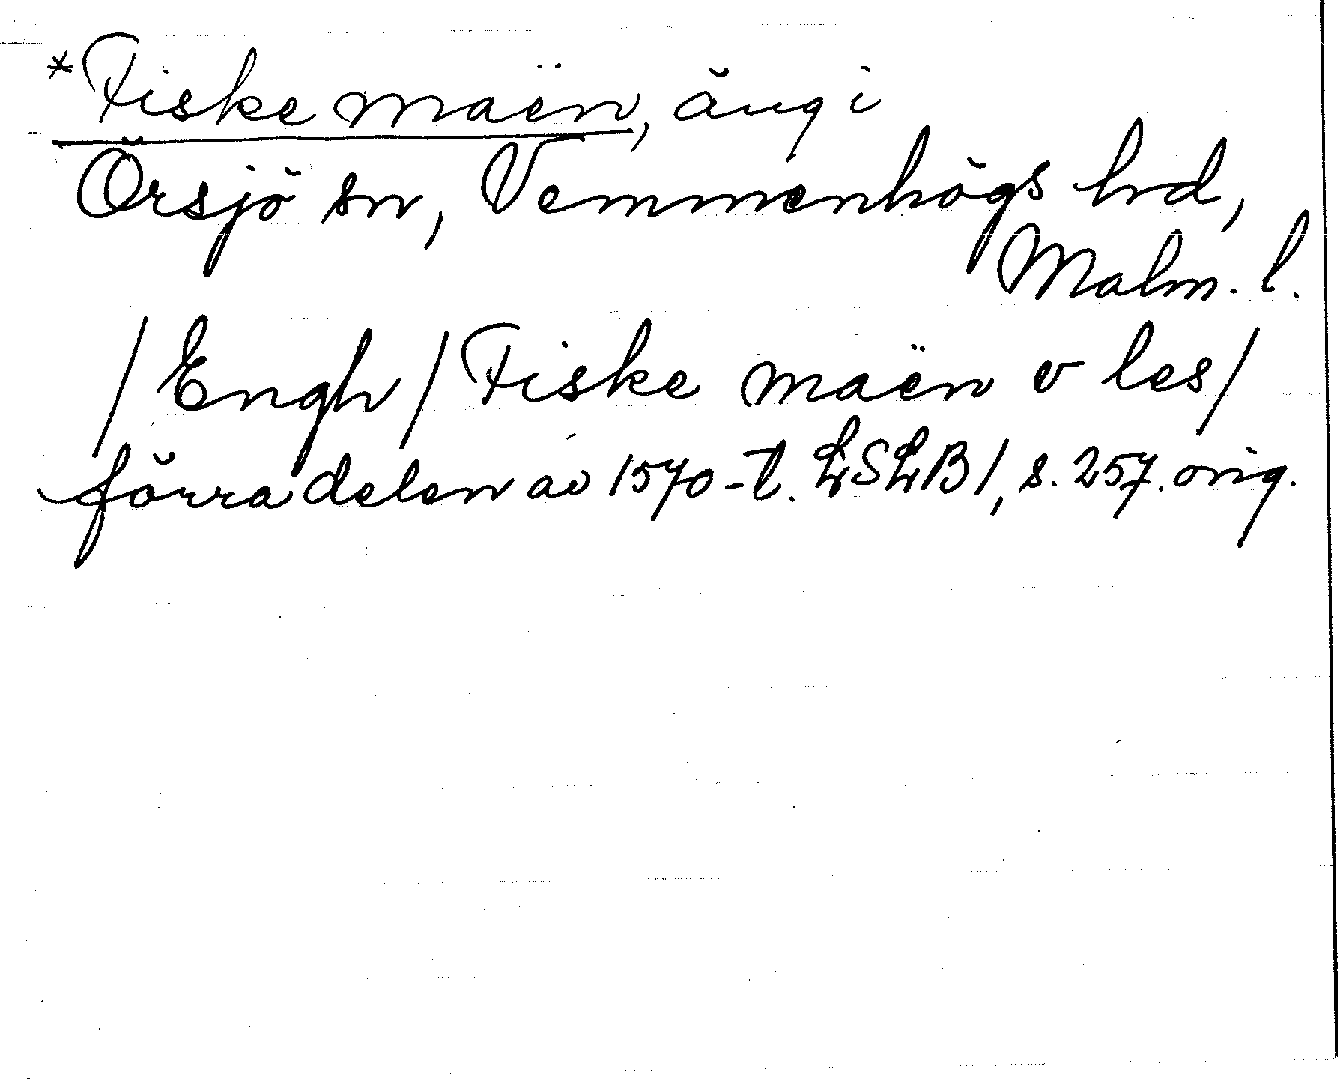 *Fiske maën, äng i
Örsjö sn, Vemmenhögs hd,
Malm. l.
/Engh/ Fiske maën v les/
förra delen av 1570-t. LSLB1, s. 257. orig.